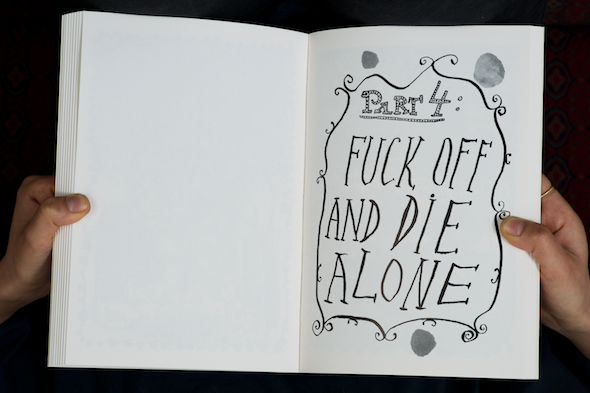 PART 4:
FUCK OFF
AND DIE
ALONE